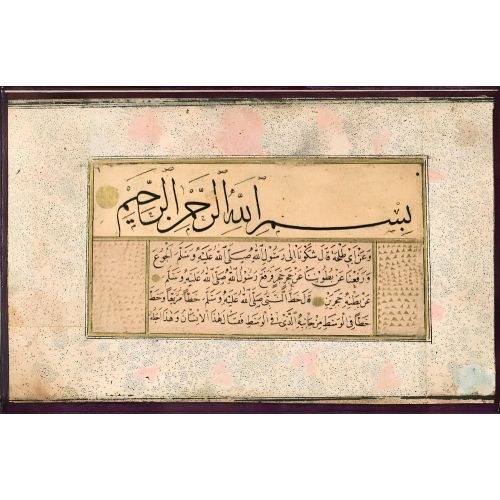 بسم الله الرحمن الرحيم
وَعَنْ اَبِي طَلْحَةَ قَالَ شَكَوْنَا اِلَى رَسُولِ اللهِ صَلَّى اللهُ عَلَيْهِ وَسَلَّمَ الْجُوعَ
وَرَفَعْنَا عَنْ بُطُونِنَا عَنْ حَجَرٍ حَجَرٍ وَرَفَعَ رَسُولُ اللهِ صَلَّى اللهُ عَلَيْهِ وَسَلَّمَ
عَنْ بَطْنِهِ حَجَرَيْنِ قَالَ خَطَّ النَّبِيُّ صَلَّى اللهُ عَلَيْهِ وَسَلَّمَ خَطًّا مُرَبَّعًا وَخَطَّ
خَطًّا فِي الْوَسَطِ مِنْ جَانِبِهِ الَّذِي فِي الْوَسَطِ فَقَالَ هَذَا الْاِنْسَانُ وَهَذَا اَجَلُهُ